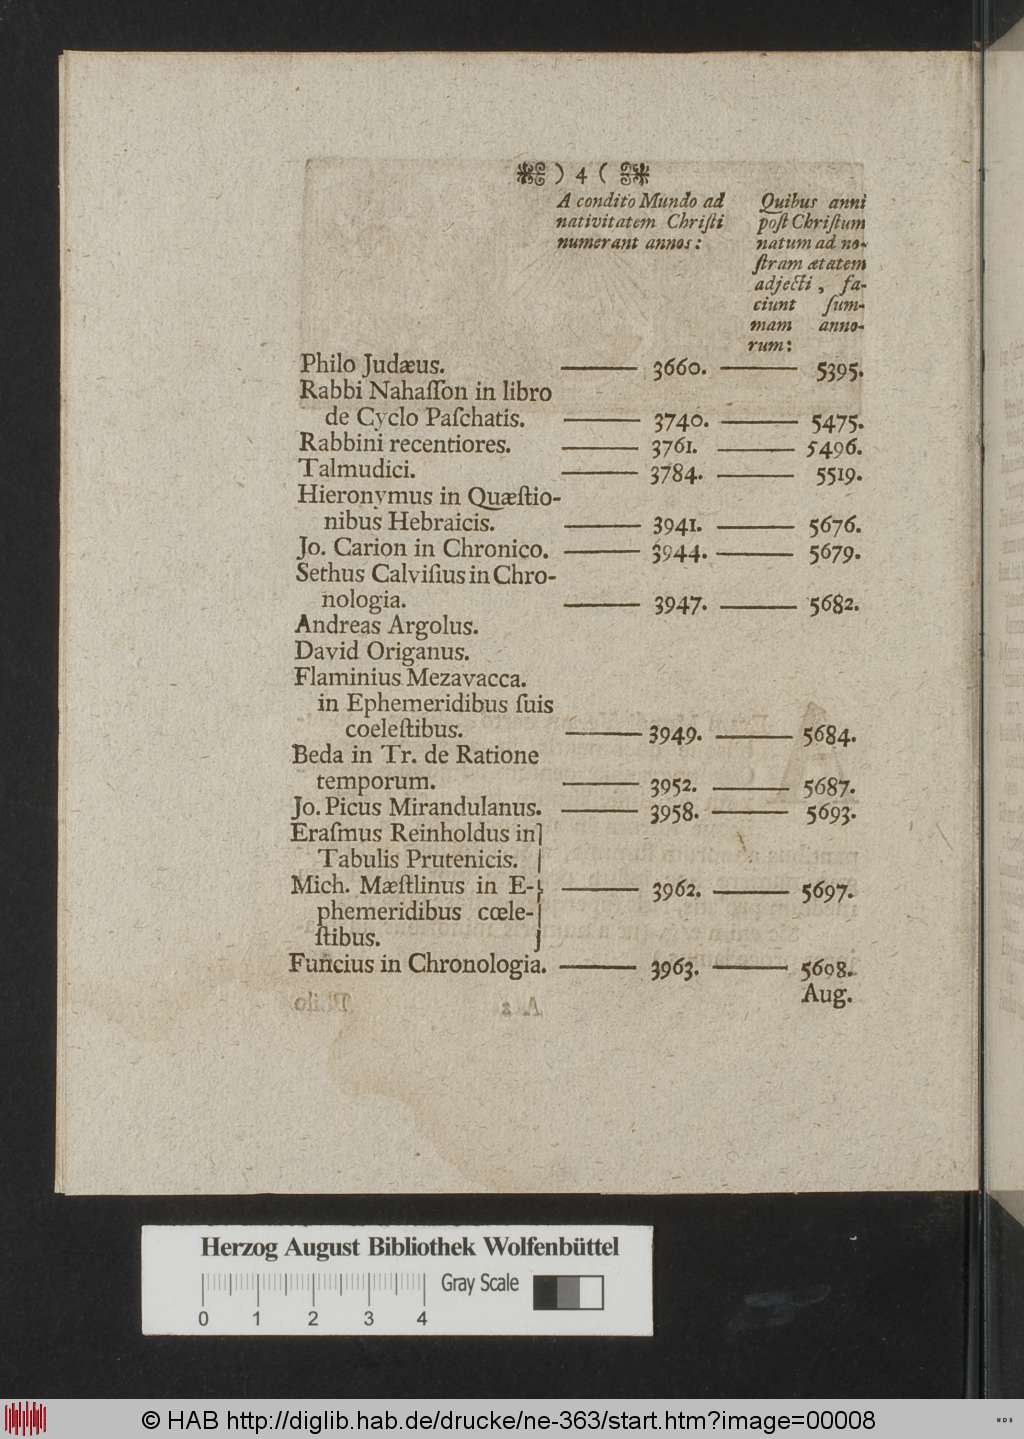 ) 4 (
A condito Mundo ad
nativitatem Chriſti
numerant annos:
Quibus anni
poſt Chriſtum
natum ad no-
ſtram ætatem
adjecti, fa-
ciunt ſum-
mam anno-
rum:
Philo Judæus. 3660. 5395.
Rabbi Nahaſſon in libro
de Cyclo Paſchatis. 3740. 5475.
Rabbini recentiores. 3761. 5496.
Talmudici. 3784. 5519.
Hieronymus in Quæſtio-
nibus Hebraicis. 3941. 5676.
Jo. Carion in Chronico. 3944. 5679.
Sethus Calviſius in Chro-
nologia. 3947. 5682.
Andreas Argolus.
David Origanus.
Flaminius Mezavacca.
in Ephemeridibus ſuis
coeleſtibus. 3949. 5684.
Beda in Tr. de Ratione
temporum. 3952. 5687.
Jo. Picus Mirandulanus. 3958. 5693.
Eraſmus Reinholdus in
Tabulis Prutenicis.
Mich. Mæſtlinus in E- 3962. 5697.
phemeridibus cœle-
ſtibus.
Funcius in Chronologia. 3963. 5698.
Aug.
Herzog August Bibliothek Wolfenbüttel
Gray Scale
0 1 2 3 4
© HAB http://diglib.hab.de/drucke/ne-363/start.htm?image=00008